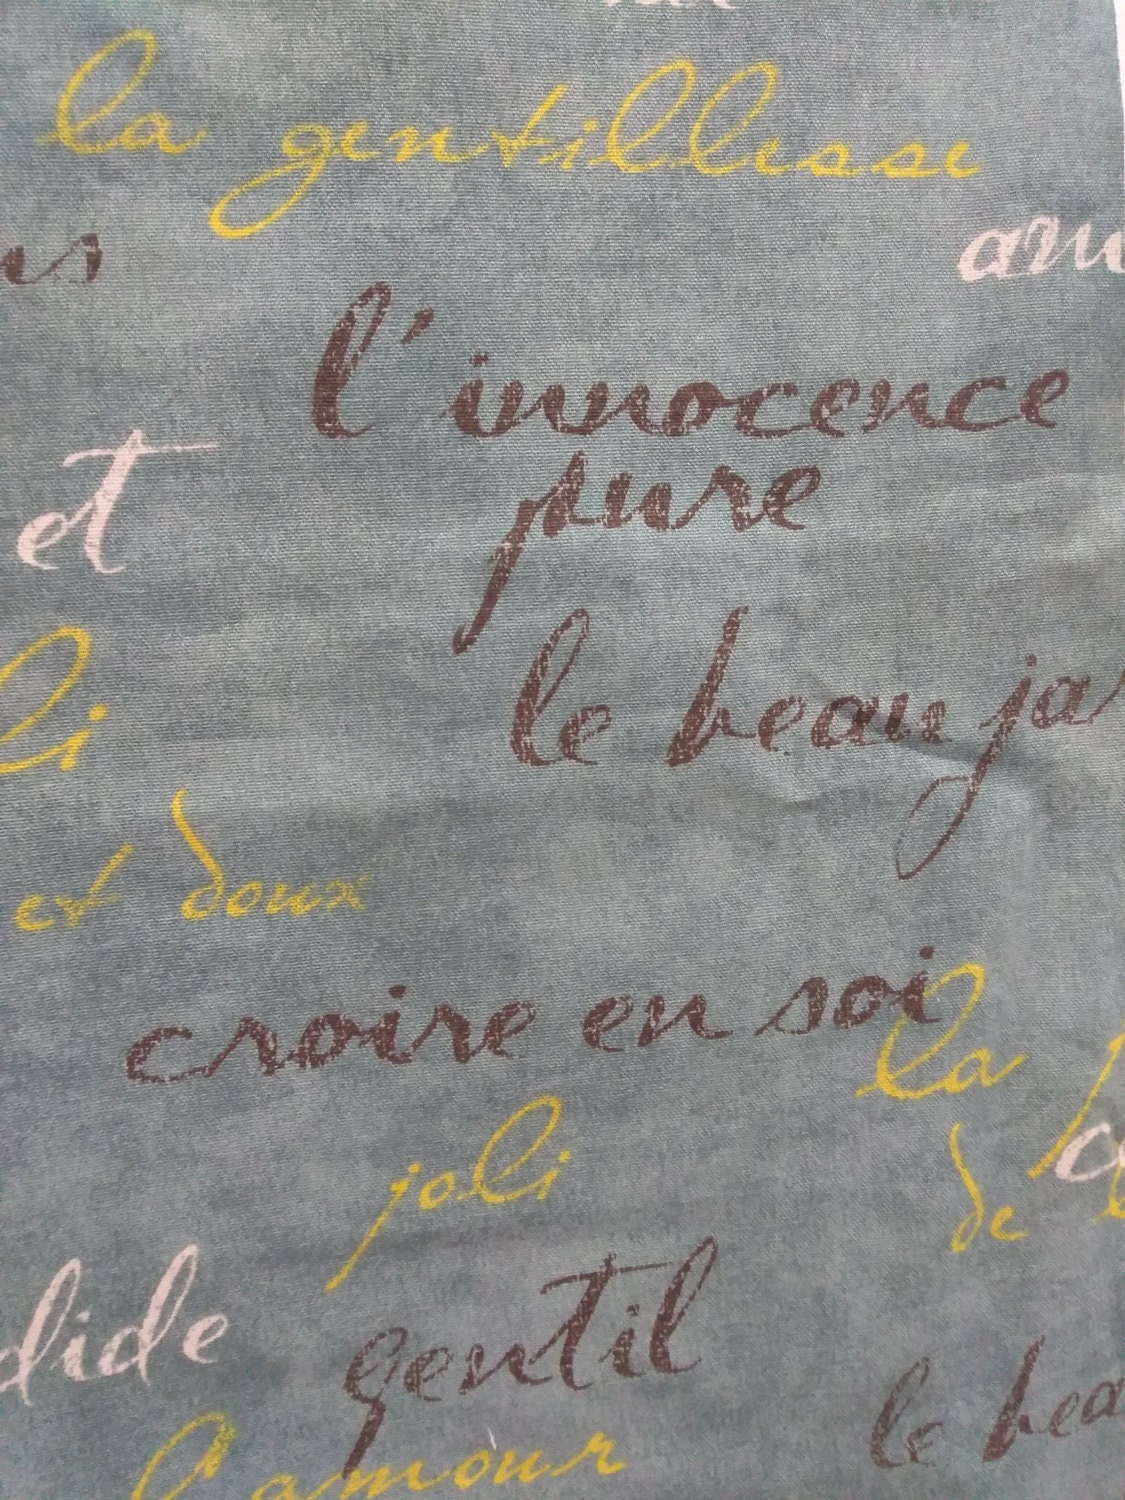 la gentillesse
l'innocence
pure
et
le beau
li
et doux
croire en soi
la
joli
de
dide
gentil
le
l'amour